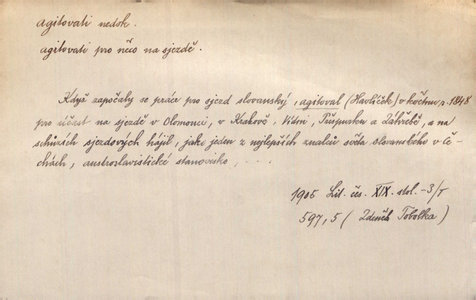 agitovati nedok.
agitovati pro něco na sjezdě.
Když započaly se práce pro sjezd slovanský, agitoval (Havlíček) v květnu r. 1848
pro účast na sjezdě v Olomouci, v Krakově, Vídni, Prešpurku a Záhřebě, a na
schůzích sjezdových hájil, jako jeden z nejlepších znalců světa slovanského v Če-
chách, austroslavistické stanovisko, . . .
1905 Lit. čes. XIX. stol. - 3/I
597,5 (Zdeněk Tobolka)